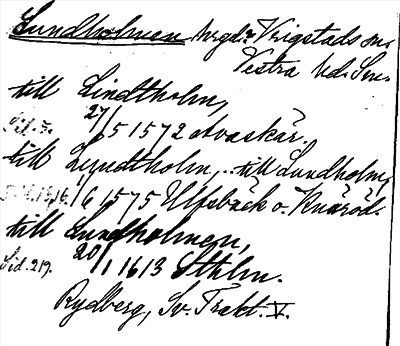 Lundholmen, hrgd. Vrigstads sn.
Vestra hd. Sm.
till Lindtholm,
Sid. 5. 27/5 1572 Avaskär.
till Lyndtholm, .. till Lundholm,
16/6 1575 Ulfsbäck o. Knäröd.
till Lundholmen,
Sid. 219. 20/1 1613 Sthlm.
Rydberg, Sv. Trakt. V.